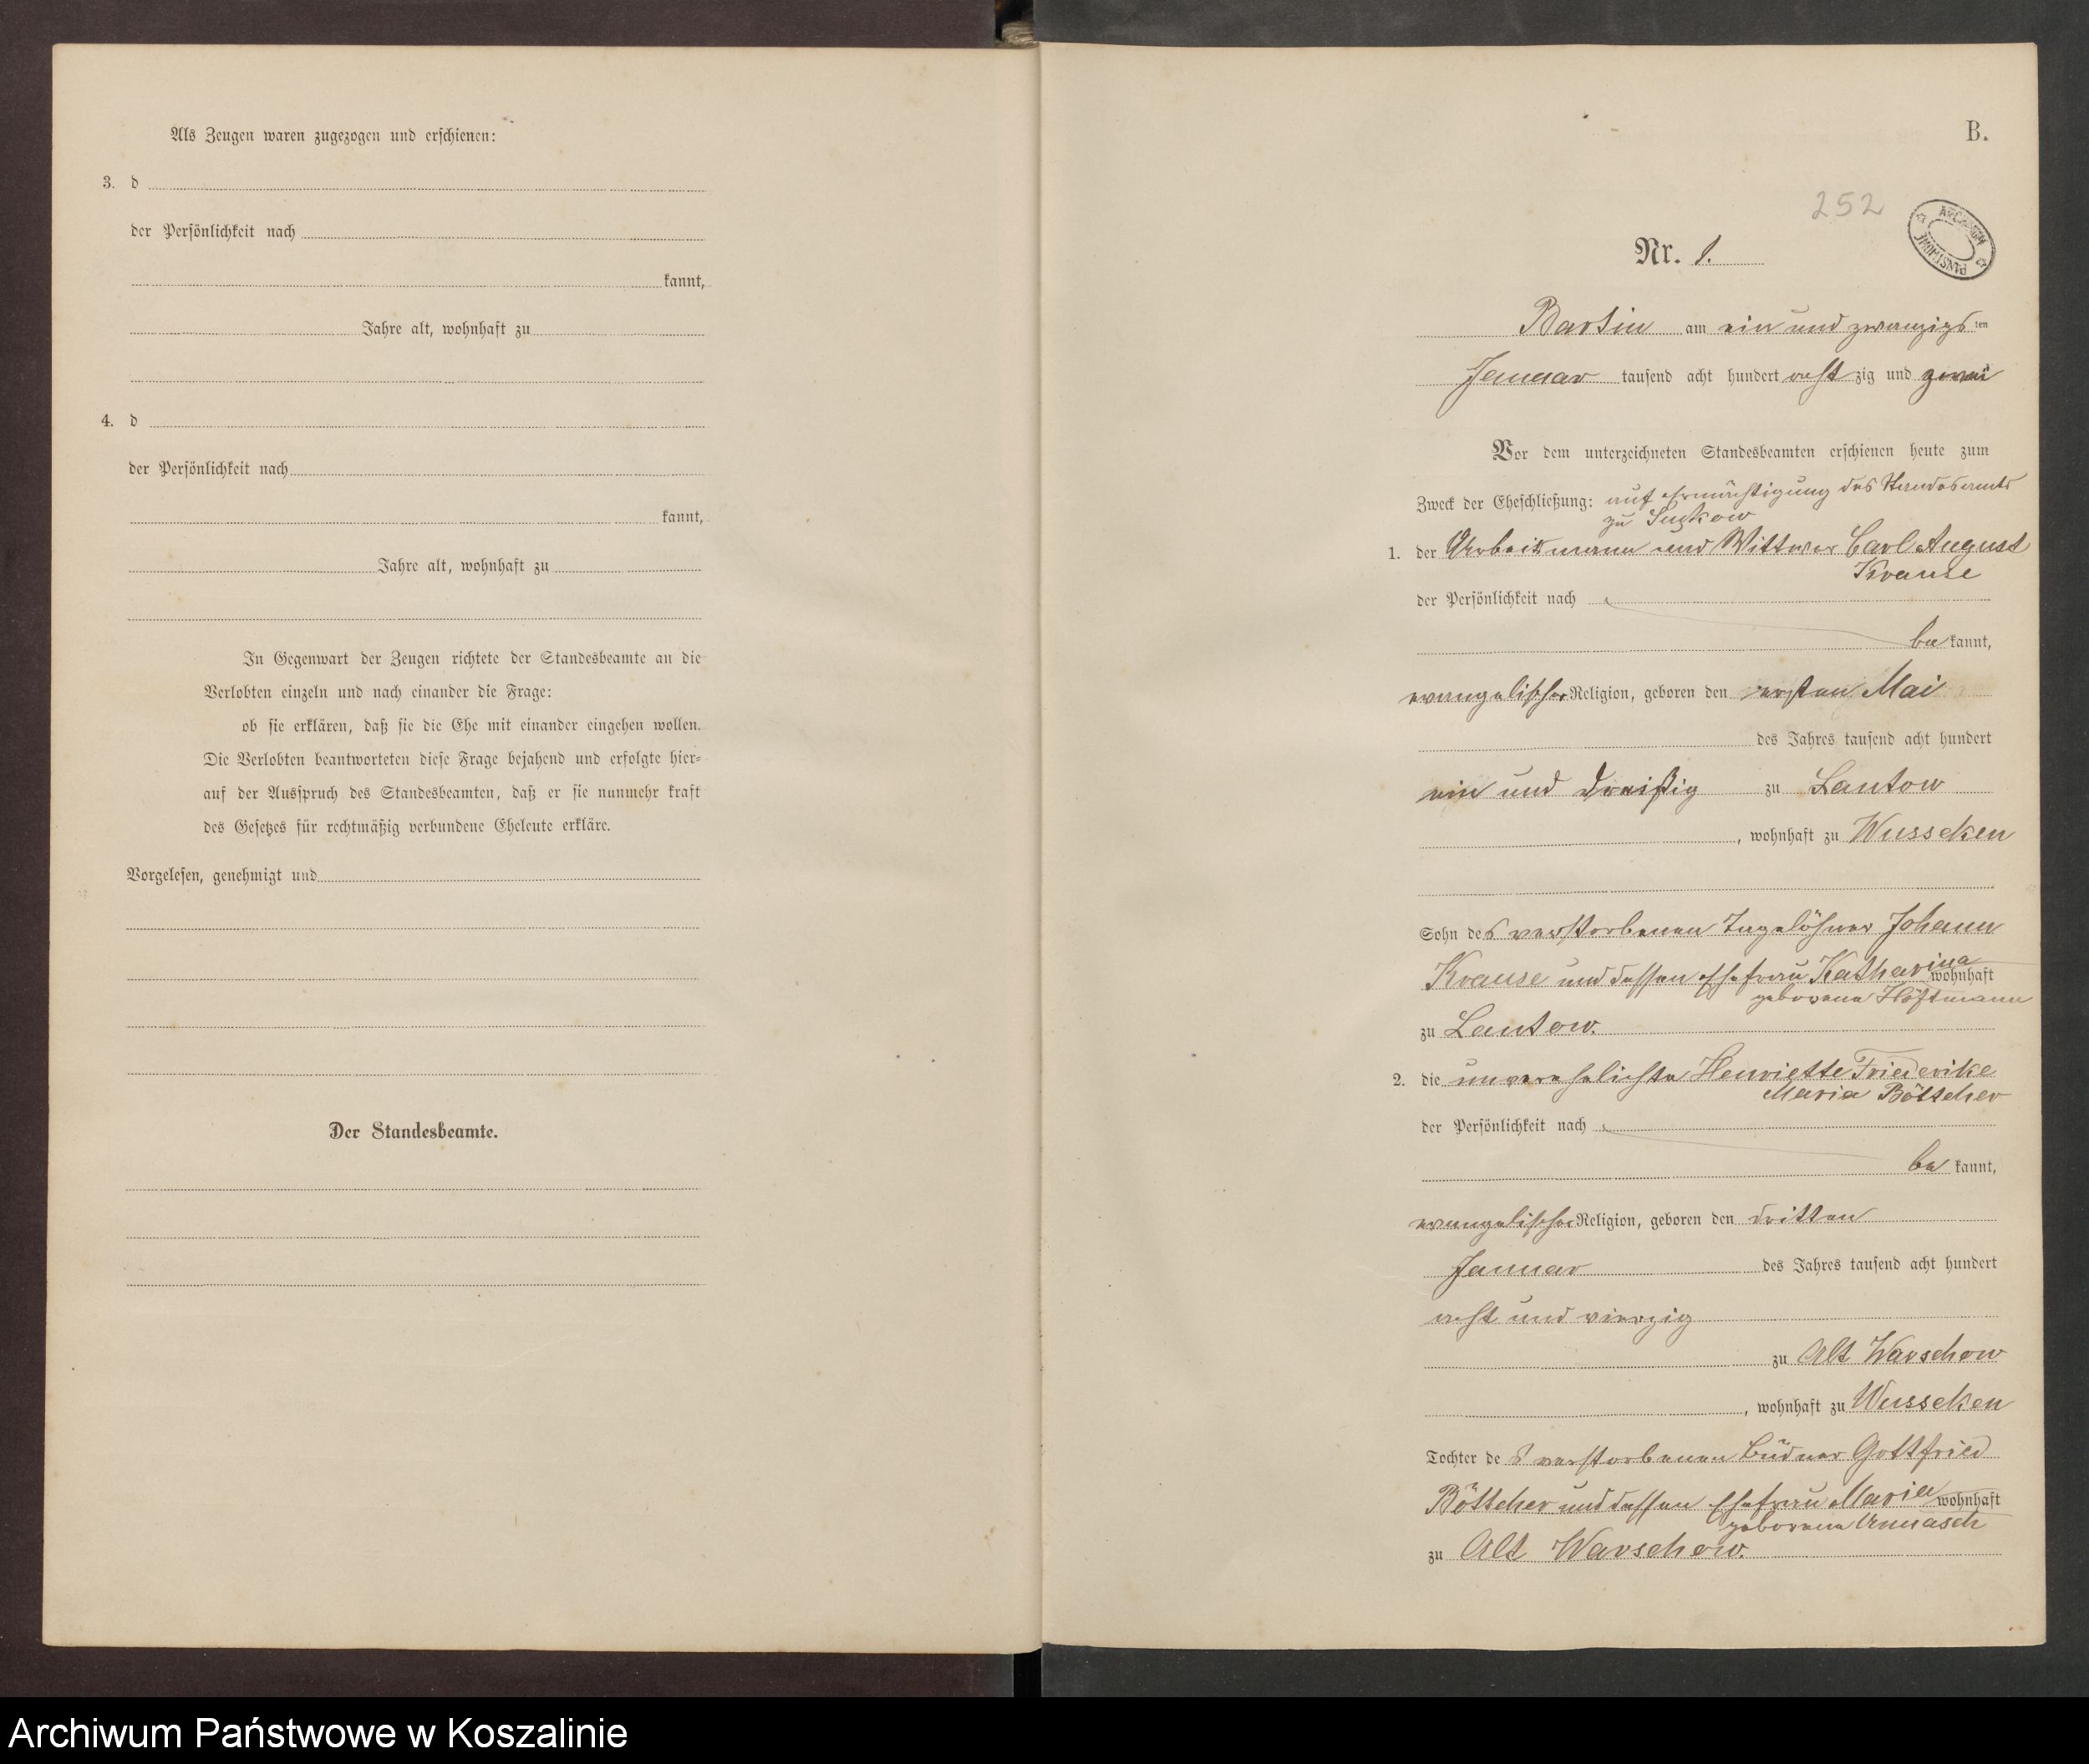 Als Zeugen waren zugezogen und erschienen:
3. d
der Persönlichkeit nach
kannt,
Jahre alt, wohnhaft zu
4. d
der Persönlichkeit nach
kannt,
Jahre alt, wohnhaft zu
In Gegenwart der Zeugen richtete der Standesbeamte an die
Verlobten einzeln und nach einander die Frage:
ob sie erklären, daß sie die Ehe mit einander eingehen wollen.
Die Verlobten beantworteten diese Frage bejahend und erfolgte hier-
auf der Ausspruch des Standesbeamten, daß er sie nunmehr kraft
des Gesetzes für rechtmäßig verbundene Eheleute erkläre.
Vorgelesen, genehmigt und
Der Standesbeamte.
B.
252
ARCHIWUM PAŃSTWOWE
Nr. 1.
Bartin am ein und zwanzigs ten
Januar tausend acht hundert acht zig und zwei
Vor dem unterzeichneten Standesbeamten erschienen heute zum
Zweck der Eheschließung: auf Ermächtigung des Standesamts
zu Suckow
1. der Arbeitsmann und Wittwer Carl August
Krause
der Persönlichkeit nach
be kannt,
evangelischer Religion, geboren den ersten Mai
des Jahres tausend acht hundert
ein und dreißig zu Lantow
, wohnhaft zu Wusseken
Sohn des verstorbenen Tagelöhner Johann
Krause und dessen Ehefrau Katharina wohnhaft
geborene Höftmann
zu Lantow.
2. die unverehelichte Henriette Friederike
Maria Böttcher
der Persönlichkeit nach
be kannt,
evangelischer Religion, geboren den dritten
Januar des Jahres tausend acht hundert
acht und vierzig
zu Alt Warschow
, wohnhaft zu Wusseken
Tochter des verstorbenen Büdner Gottfried
Böttcher und dessen Ehefrau Maria wohnhaft
geborene
zu Alt Warschow.
Archiwum Państwowe w Koszalinie